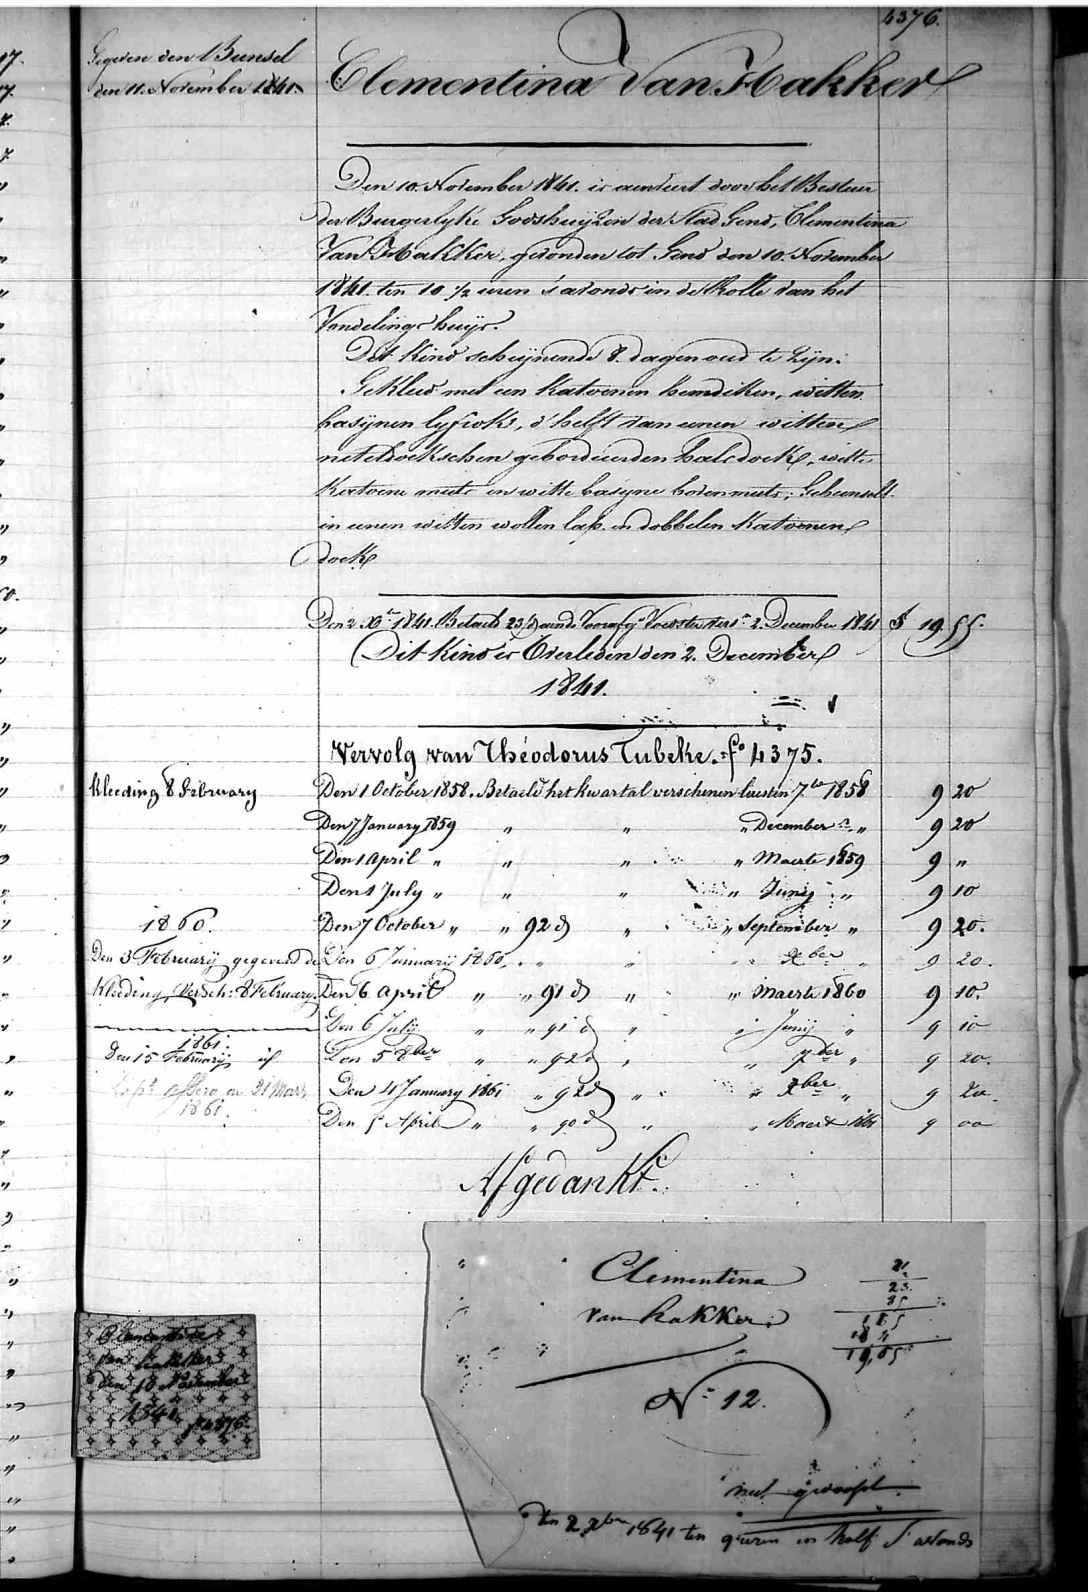 4376.
Gegeven den Bunsel
den 11. November 1841.
Clementina Van Hakker
Den 10. November 1841. is aenveert door het Bestuer
der Burgerlyke Godshuijzen der Stad Gend, Clementina
Van Hakker, gevonden tot Gend den 10. November
1841. ten 10 ½ uren s'avonds in de Rolle van het
Vondelings huijs.
Dit Kind schijnende 8. dagen oud te zijn.
Gekleed met een Katoenen hemdeken, witten
basijnen lyfrok, d'helft van eenen witten
neteldoekschen gebordeurden halsdoek, witte
Katoene muts en witte basyne bovenmuts; Gebunselt
in eenen witten wollen lap en dobbelen Katoenen
doek
Den 2. Xbr 1841. Betaeld 23 d 2. December 1841 f 19.55.
Dit Kind is Overleden den 2. December
1841.
Vervolg van Théodorus Tubeke. fo 4375.
Kleeding 8 February
Den 1 October 1858. Betaeld het kwartal verschenen leesten 7ber 1858 9 20
Den 7 January 1859 " " " December " 9 20
Den 1 April " " " " Maerte 1859 9 "
Den 1 July " " " " Junij " 9 10
1860.
Den 7 October " " 92 d " " September " 9 20.
Den 3 February gegeven de
Den 6 January 1860, " " " Xber " 9 20.
Kleeding, Versch: 8 February.
Den 6 April " " 91 d " " Maerte 1860 9 10.
Den 6 July " " 91 d " " Junij " 9 10
1861.
Den 15 February
Den 5 8ber " " 92 d " " 7ber " 9 20.
21 Maert
1861.
Den 4 January 1861 " 92 d " " Xber " 9 20.
Den 5 April " " 90 d " " Maert 1861 9 00
Afgedankt.
Clementina
van hakker
21
23.
35
185
18 "
19,55
No 12.
niet
den 2 Xber 1841 ten 9 uren en half S'avonds
Clementina
van hakker
den 10 November
1841
fo 4376.